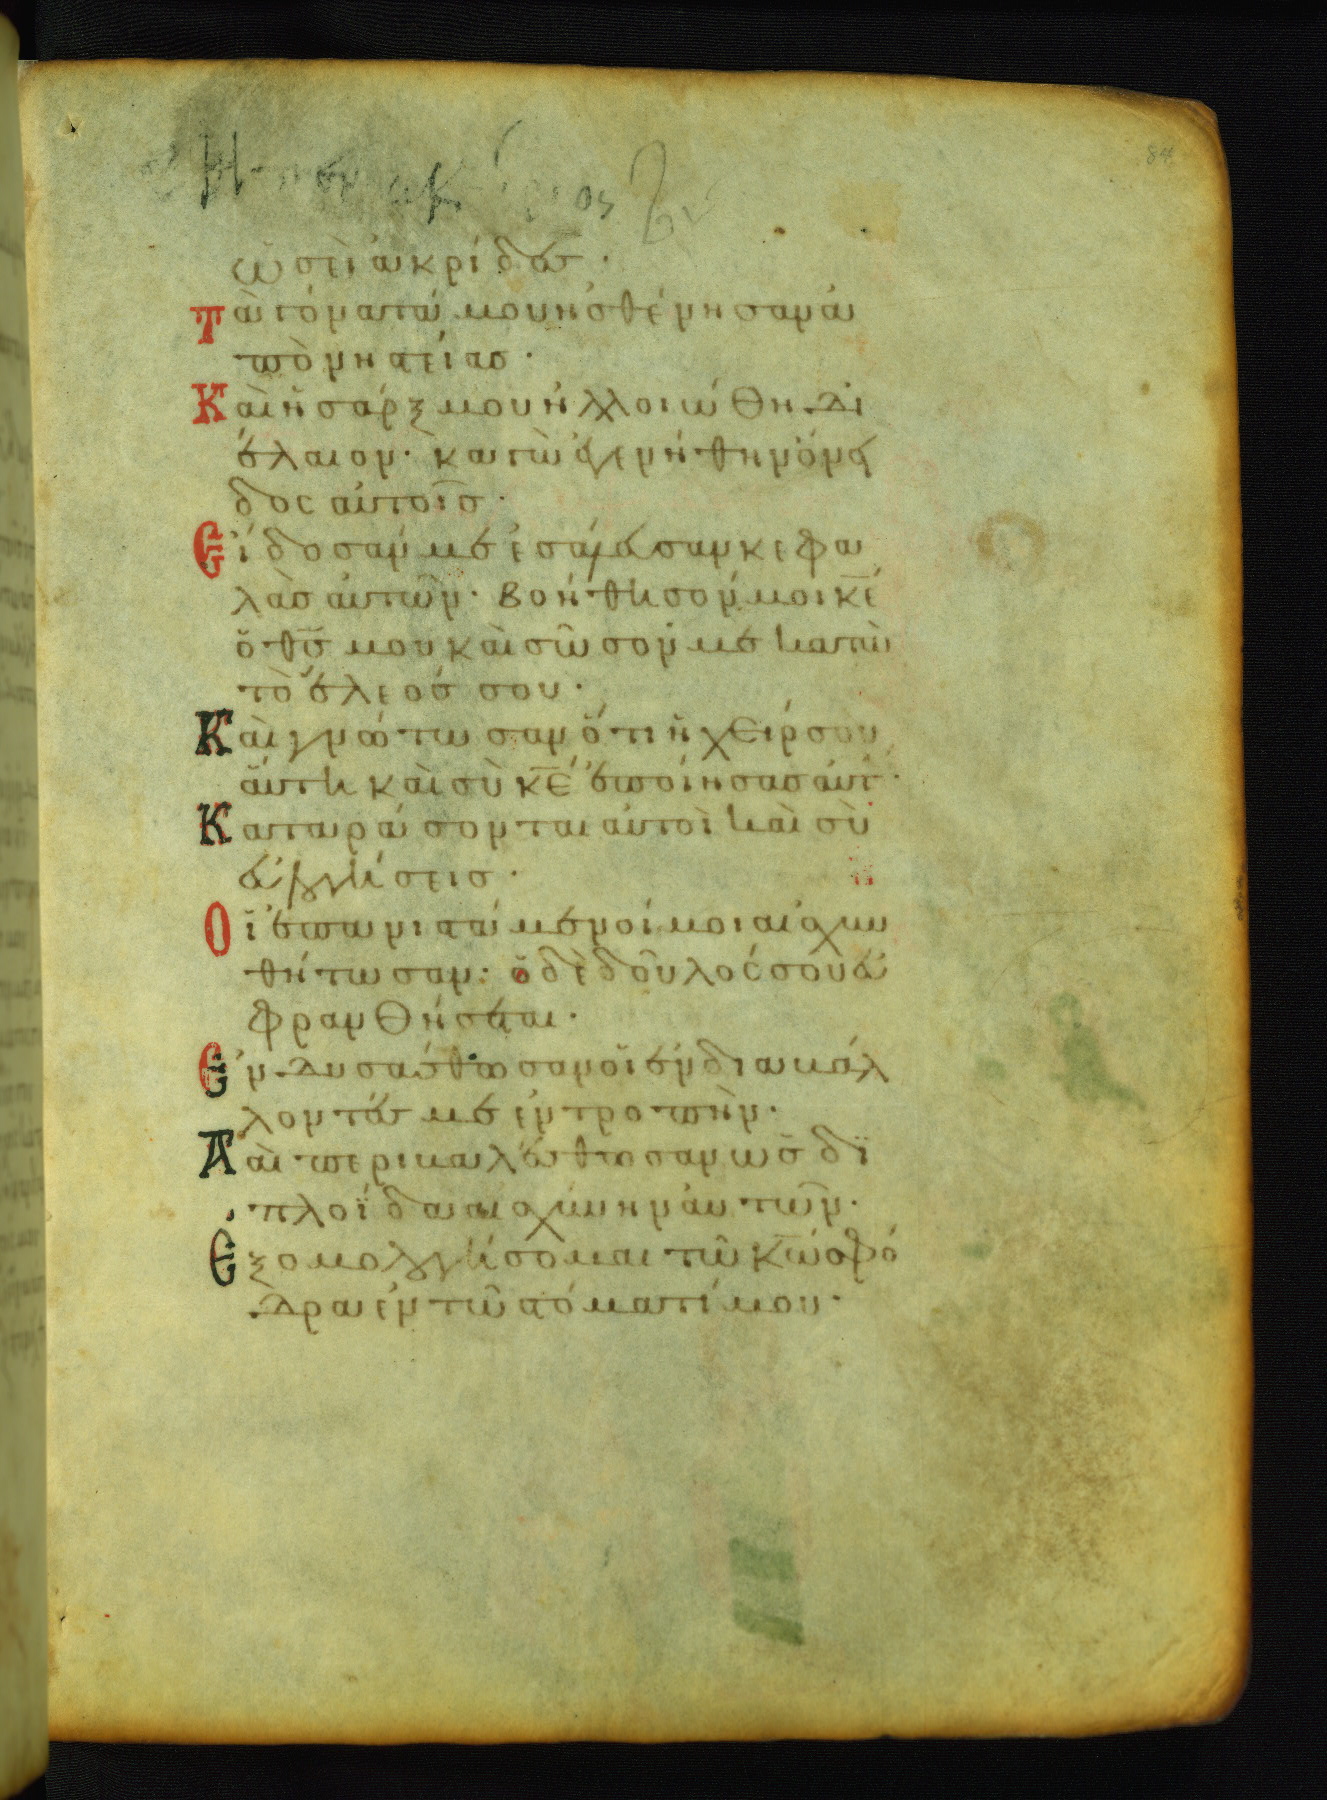 ὡσεὶ ἀκρίδες·
Τὰ γόνατά μου ἠσθένησαν ἀ
πὸ νηστείας·
Καὶ ἡ σάρξ μου ἠλλοιώθη δι
ἔλαιον· κἀγὼ ἐγενήθην ὄνει
δος αὐτοῖς·
Εἴδοσάν με ἐσάλευσαν κεφα
λὰς αὐτῶν· βοήθησόν μοι κ̅ε̅
ὁ θ̅ς̅ μου καὶ σῶσόν με κατὰ
τὸ ἔλεός σου·
Καὶ γνώτωσαν ὅτι ἡ χείρ σου
αὕτη καὶ σὺ κ̅ε̅ ἐποίησας αὐτ·
Καταράσονται αὐτοὶ καὶ σὺ
εὐλογήσεις·
Οἱ ἐπανιστάμενοί μοι αἰσχυν
θήτωσαν· ὁ δὲ δοῦλός σου εὐ
φρανθήσεται·
Ἐνδυσάσθωσαν οἱ ἐνδιαβάλ
λοντές με ἐντροπὴν·
Καὶ περιβαλέσθωσαν ὡς δι
πλοΐδα αἰσχύνην αὐτῶν·
Ἐξομολογήσομαι τῷ κ̅ω̅ σφό
δρα ἐν τῷ στόματί μου·
84